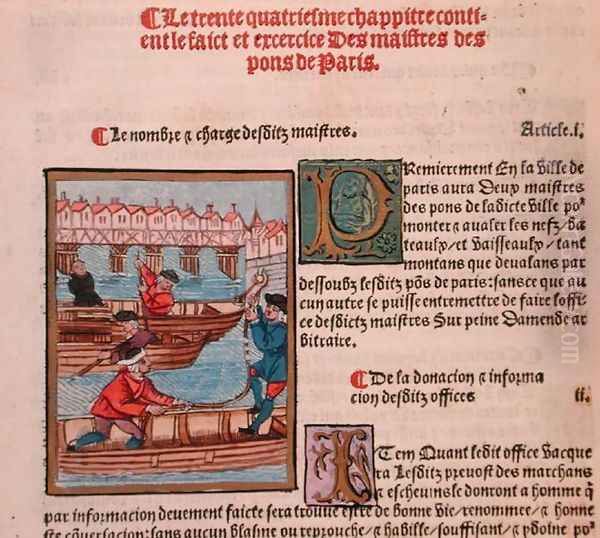 Le trente quatriesme chappitre conti-
ent le faict et excercice Des maistres des
pons de Paris.
Le nombre ⁊ charge desditz maistres. Article.i.
PRemierement En la ville de
paris aura Deux maistres
des pons de ladicte ville po²
monter ⁊ aualer les nefz/ ba
teaulx/ et Vaisseaulx/ tant
montans que deualans par
dessoubz lesditz põs de paris: sans ce que au
cun autre se puisse entremettre de faire loffi
ce desdictz maistres Sur peine Damende ar
bitraire.
De la donacion ⁊ informa
cion desditz offices ii.
ITem Quant ledit office Vacque
ra Lesditz preuost des marchans
⁊ escheuins le donront a homme q̃
par informacion deuement faicte sera trouue estre de bonne Vie/ renommee/ ⁊ honne
ste cõuersacion: sans aucun blasme ou reprouche/ ⁊ habille/ souffisant/ ⁊ ydoine po²